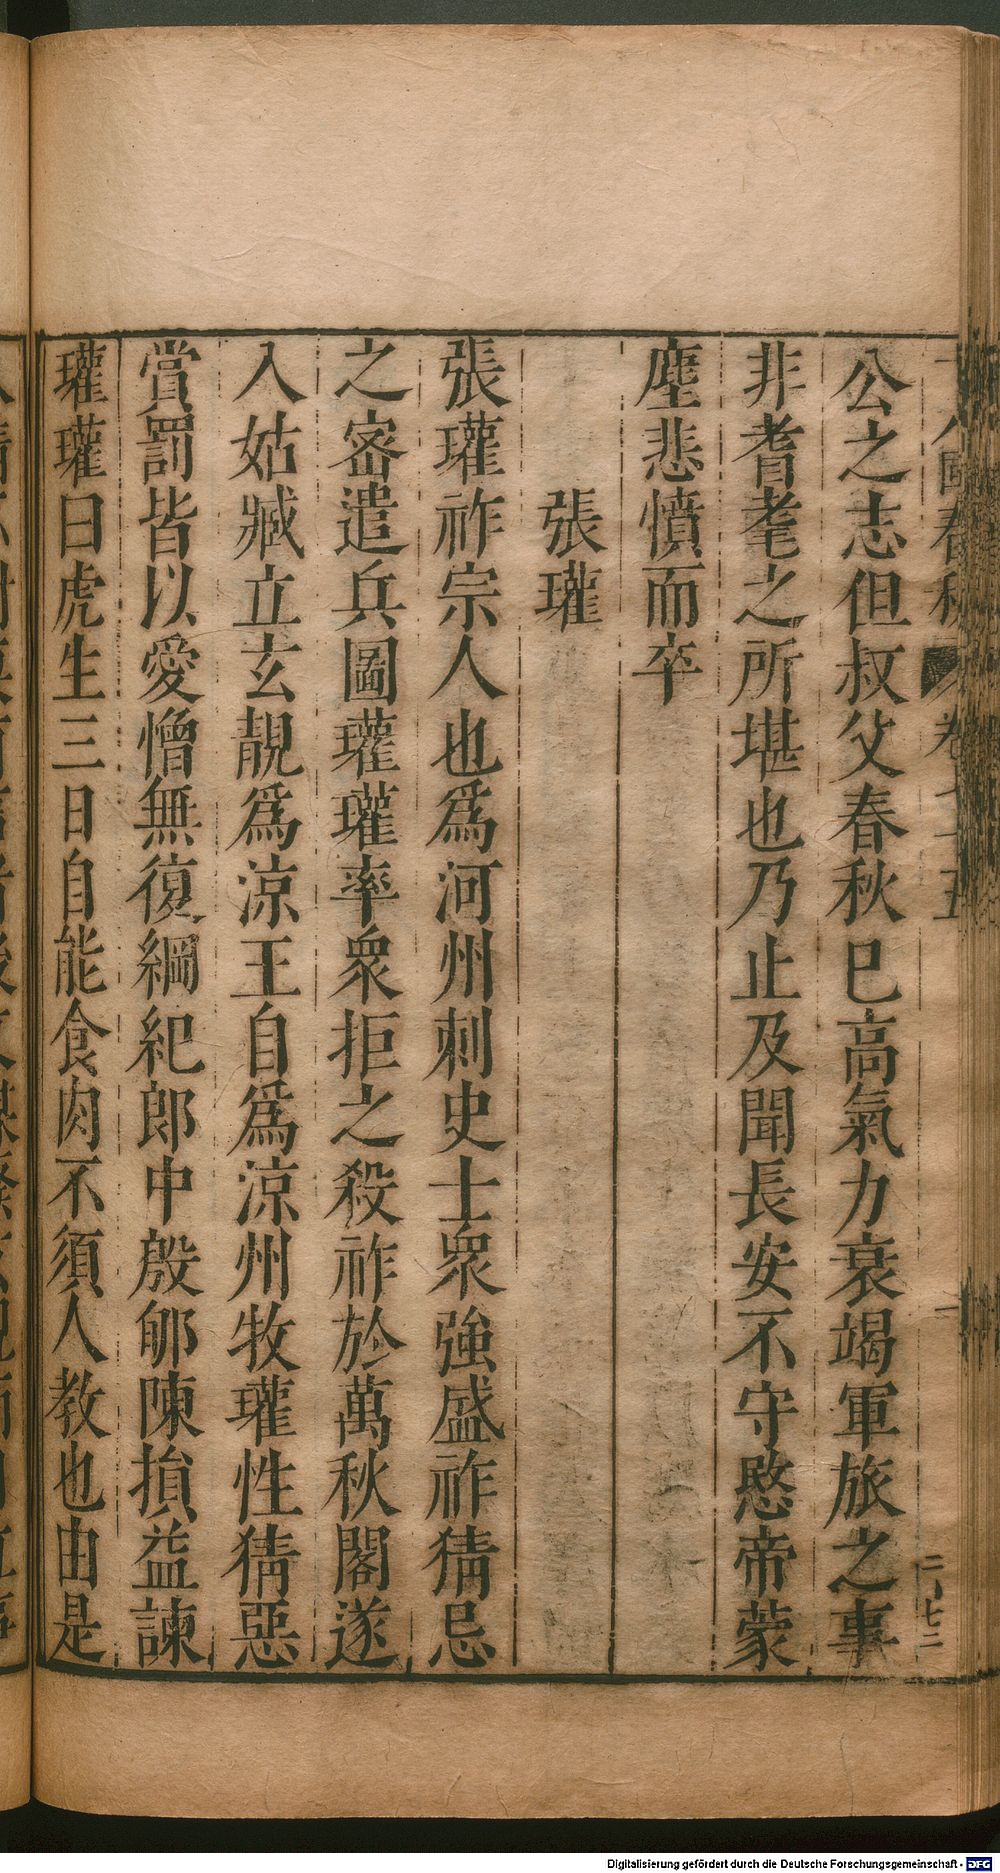 國春秋 卷七十五
公之志但叔父春秋已高氣力衰竭軍旅之事
非耆耄之所堪也乃止及聞長安不守愍帝蒙
塵悲憤而卒
張瓘
張瓘祚宗人也為河州刺史士衆強盛祚猜忌
之密遣兵圖瓘瓘率衆拒之殺祚於萬秋閣遂
入姑臧立玄靚為涼王自為涼州牧瓘性猜惡
賞罰皆以愛憎無復綱紀郎中殷郇陳損益諫
瓘瓘曰虎生三日自能食肉不須人教也由是
Digitalisierung gefördert durch die Deutsche Forschungsgemeinschaft - DFG